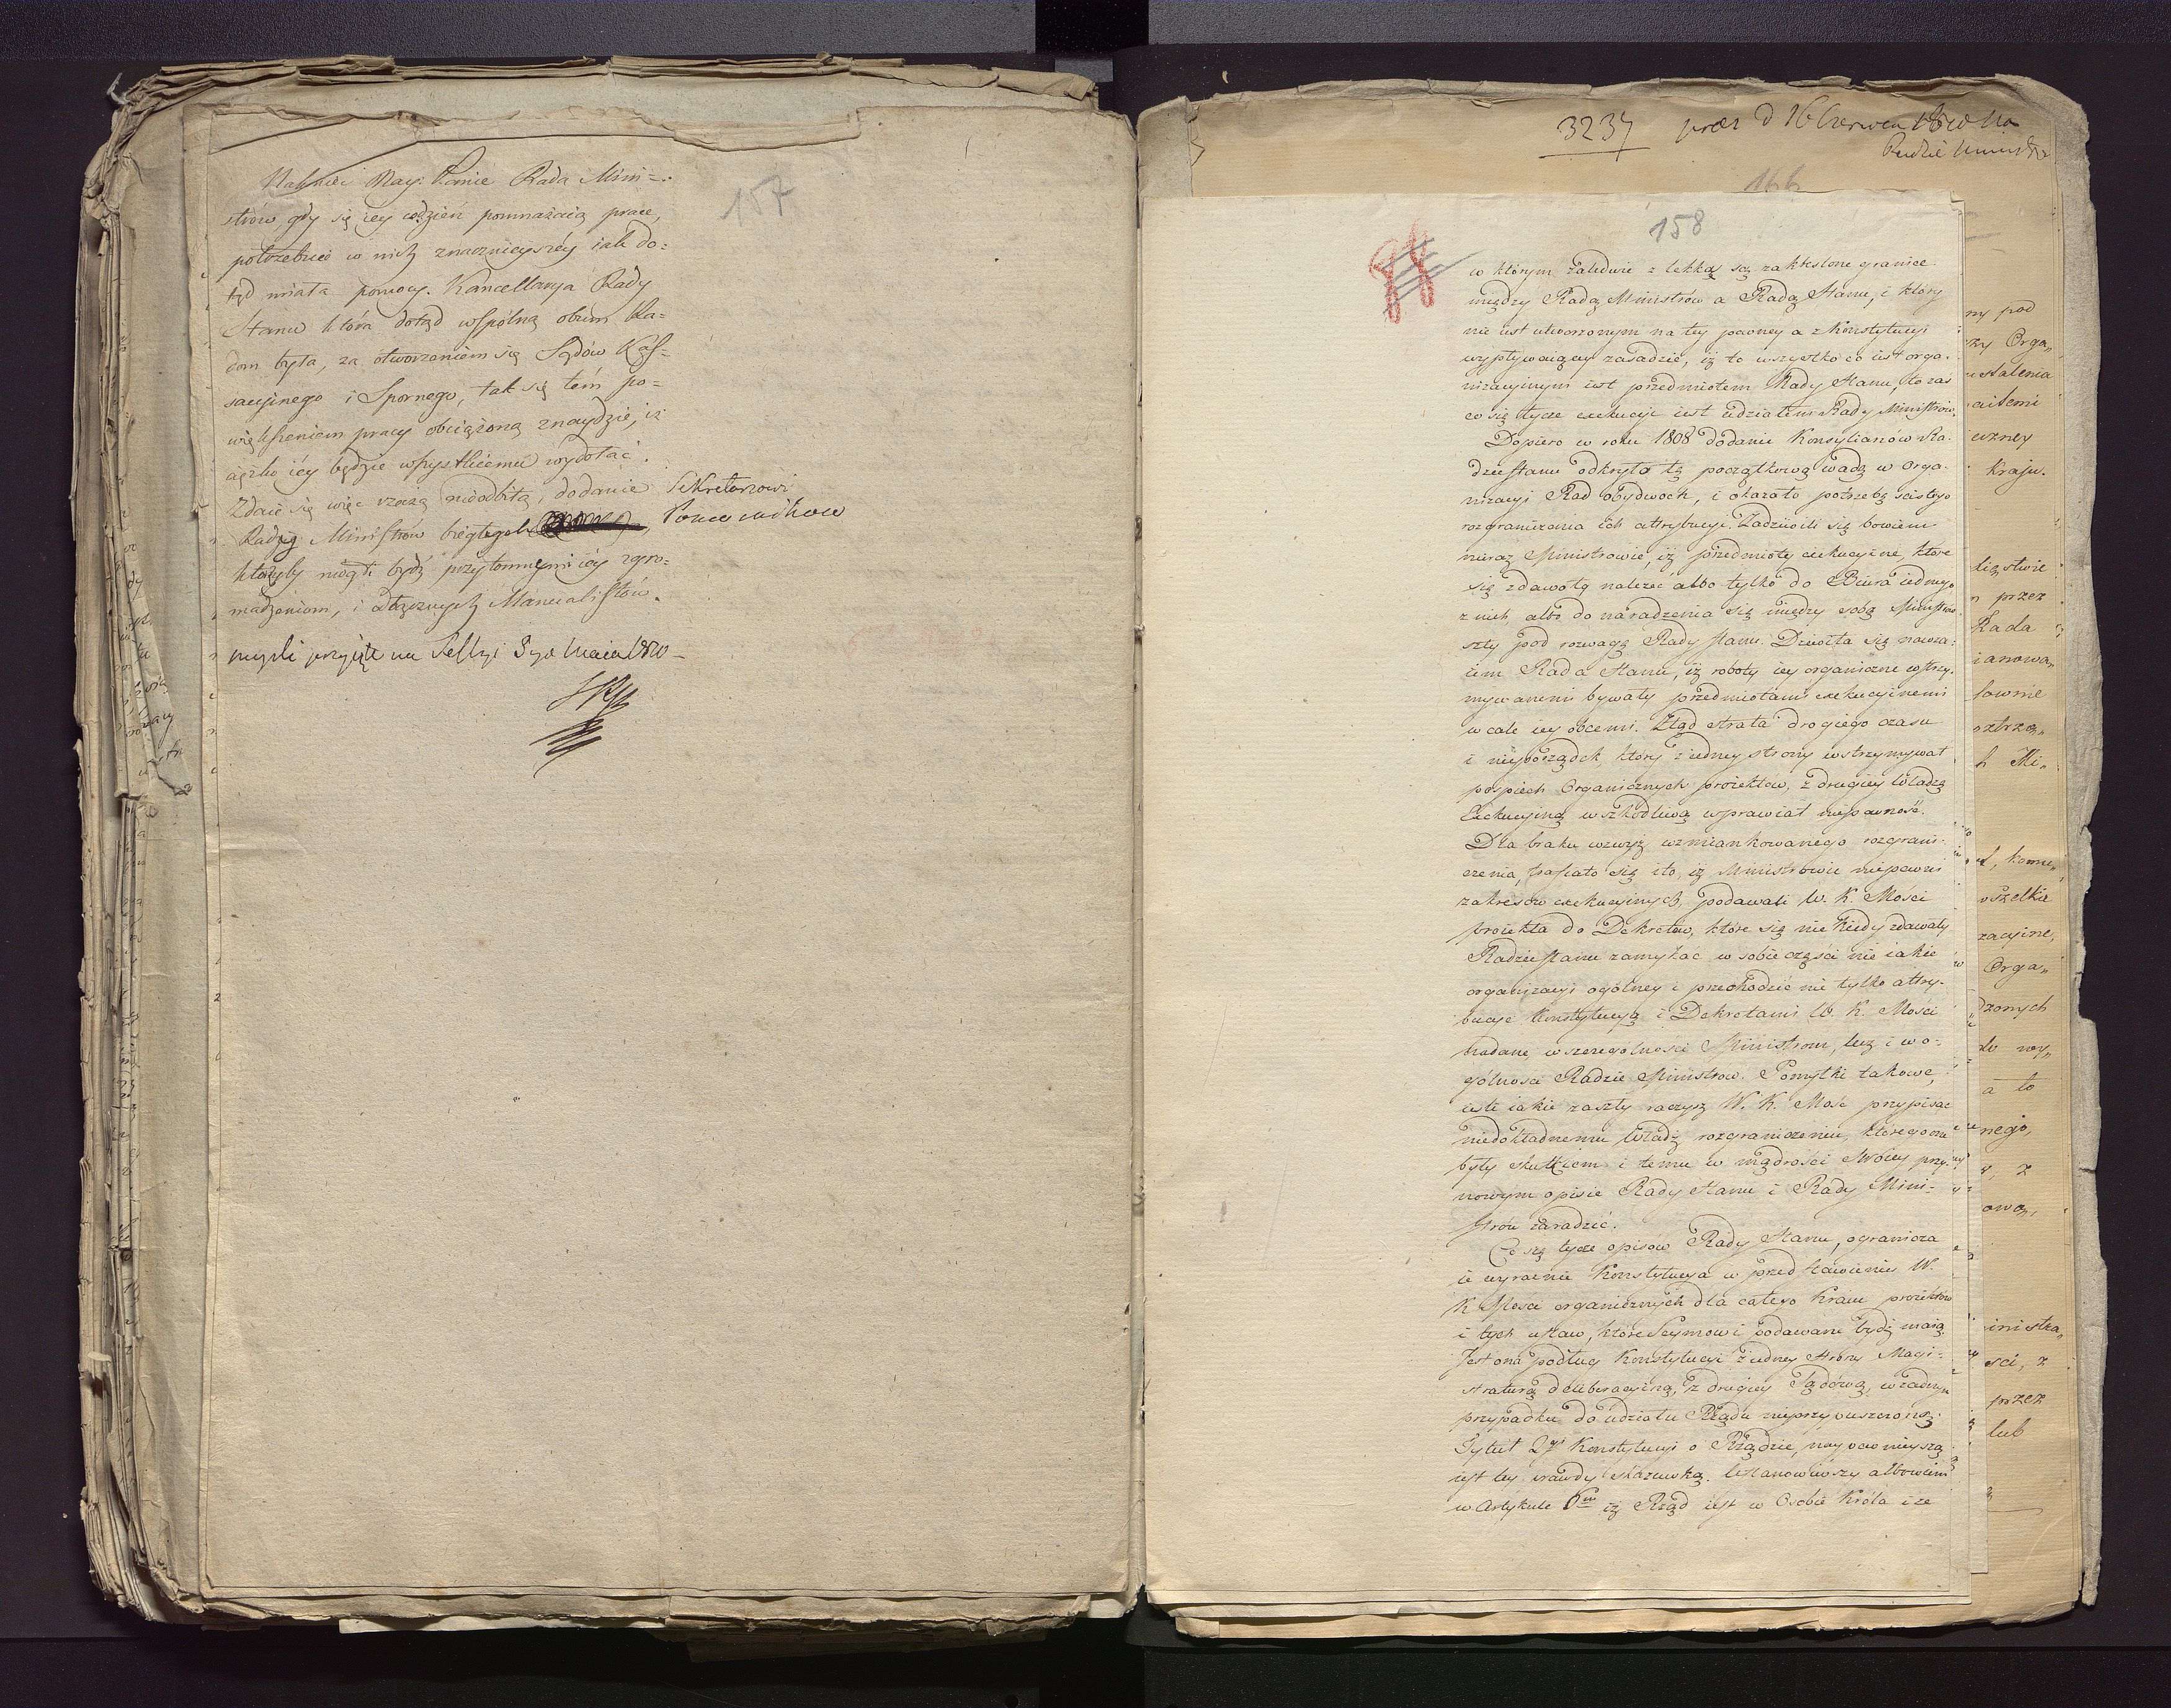 157
Nayjaś: Panie Rada Mini=
strów gdy się iey co dzień pomnażaią prace,
potrzebuie w nich znacznieyszéy iak do=
tąd miała pomocy. Kancellarya Rady
Stanu która dotąd wspólną obum Ra=
dom była, za otworzeniem się Sądów Kas=
sacyinego i Spornego, tak się tém po=
większeniem pracy obciążoną znaydzie, iż
ciężko iéy będzie wszystkiemu wydołać.
Zdaie się więc rzeczą nieodbitą, dodanie Sekretarzowi
Rady Ministrów biegłych Pomocników
którzyby mogli bydź przytomnymi iéy zgro=
madzeniom, i Manualistów.
myśli przyięte na Sessyi 3go Maia 1810
3237 prez d 16 Czerwca 1810 na
Radzie Ministr
166
158
w którym zaledwie z lekka są zakreślone granice
między Radą Ministrów a Radą Stanu, i który
nie iest utworzonym na tey pewney a z Konstytucyi
wypływaiącey zasadzie, iż to wszystko co iest orga-
nizacyinym iest przedmiotem Rady Stanu, to zaś
co się tycze exekucyi iest udziałem Rady Ministrów.
Dopiero w roku 1808 dodanie Konsyliarzów Ra-
dzie Stanu odkryło tą początkową wadę w orga-
nizacyi Rad obydwoch, i okazało potrzebę scisłego
rozgraniczenia ich attrybucyi. Zadziwili się bowiem
nieraz Ministrowie, iż przedmioty exekucyine, które
się zdawały należeć albo tylko do Biura iednego
z nich, albo do naradzenia się między sobą Ministrów
szły pod rozwagę Rady Stanu. Dziwiła się nawza-
iem Rada Stanu, iż roboty iey organiczne wstrzy-
mywanemi bywały przedmiotami exekucyinemi
wcale iey obcemi. Ztąd strata drogiego czasu
i nieporządek, który z iedney strony wstrzymywał
pospiech Organicznych proiektów, z drugiey Władzę
Exekucyiną w szkodliwą wprawiał niepewność.
Dla braku wzwyż wzmiankowanego rozgrani-
czenia, trafiało się i to, iż Ministrowie niepewni
zakresów exekucyinych, podawali W. K. Mości
proiekta do Dekretów, które się nie kiedy zdawały
Radzie Stanu zamykać w sobie części nie iakie
organizacyi ogólney i przechodzić nie tylko attry-
bucye Konstytucyą i Dekretami W. K. Mości
nadane w szczególności Ministrom, lecz i w o-
gólności Radzie Ministrów. Pomyłki takowe,
ieśli iakie zaszły raczysz W. K. Mość przypisać
niedokładnemu Władz rozgraniczeniu, którego one
były skutkiem i temu w mądrości Swoiey przy
nowym opisie Rady Stanu i Rady Mini-
strów zaradzić.
Co się tycze opisów Rady Stanu, ogranicza
ie wyraźnie Konstytucya w przedstawieniu W.
K. Mości organicznych dla całego Kraiu proiektów
i tych ustaw, które Seymowi podawane bydź maią.
Jest ona podług Konstytucyi z iedney strony Magi-
straturą deliberacyiną, z drugiey Sądową, w żadnym
przypadku do udziału Rządu nieprzypuszczoną.
Tytuł 2gi Konstytucyi o Rządzie, naypewnieyszą
iest tey prawdy skazówką. Ustanowiwszy albowiem
w Artykule 6m iż Rząd iest w Osobie Króla i że
ny pod
zy Orga„
ustalenia
kraju.
przez
Rada
ianowa„
wszelkie
zacyine,
Orga„
dzonych
do wy„
a to
nego,
z
ową,
inistra„
ści, z
przez
lub